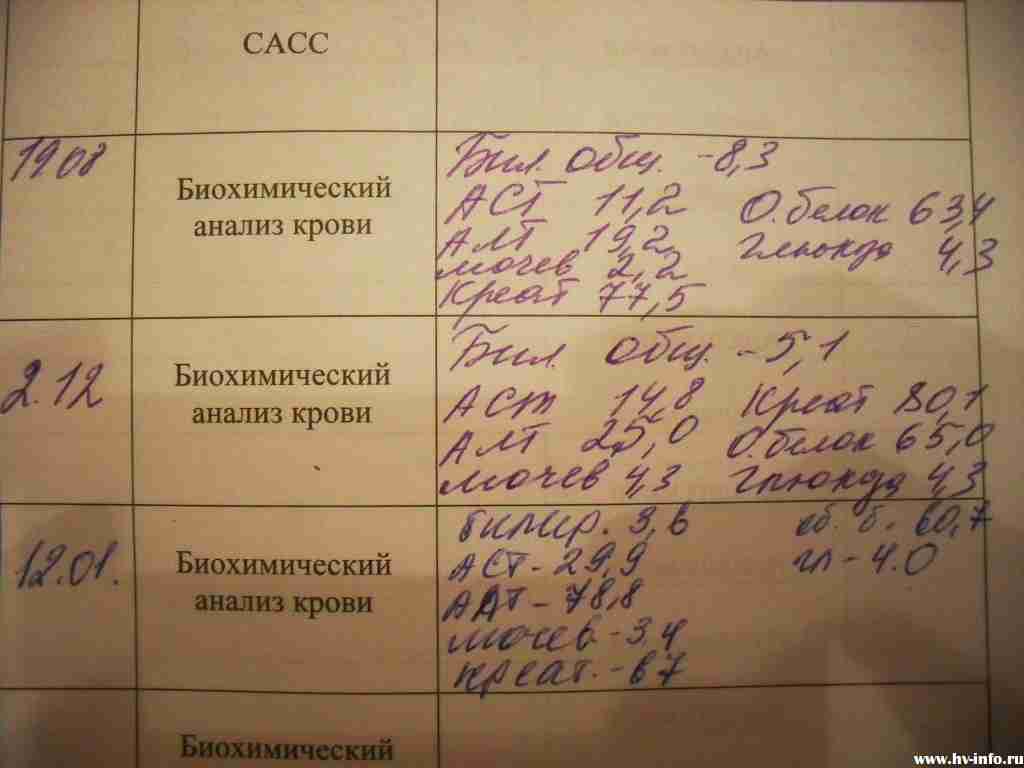 САСС
19.08
Биохимический
анализ крови
Бил. общ. - 8,3
АСТ 11,2 О.белок 63,4
АЛТ 19,2 Глюкоза 4,3
мочев 2,2
Креат 77,5
2.12
Биохимический
анализ крови
Бил. общ. - 5,1
АСТ 14,8 Креат 80,1
АЛТ 25,0 О.белок 65,0
мочев 4,3 Глюкоза 4,3
12.01.
Биохимический
анализ крови
билир. 3,6 об. б. 60,7
АСТ - 29,9 гл - 4.0
АЛТ - 78,8
мочев - 3,4
креат. - 67
Биохимический
www.hv-info.ru